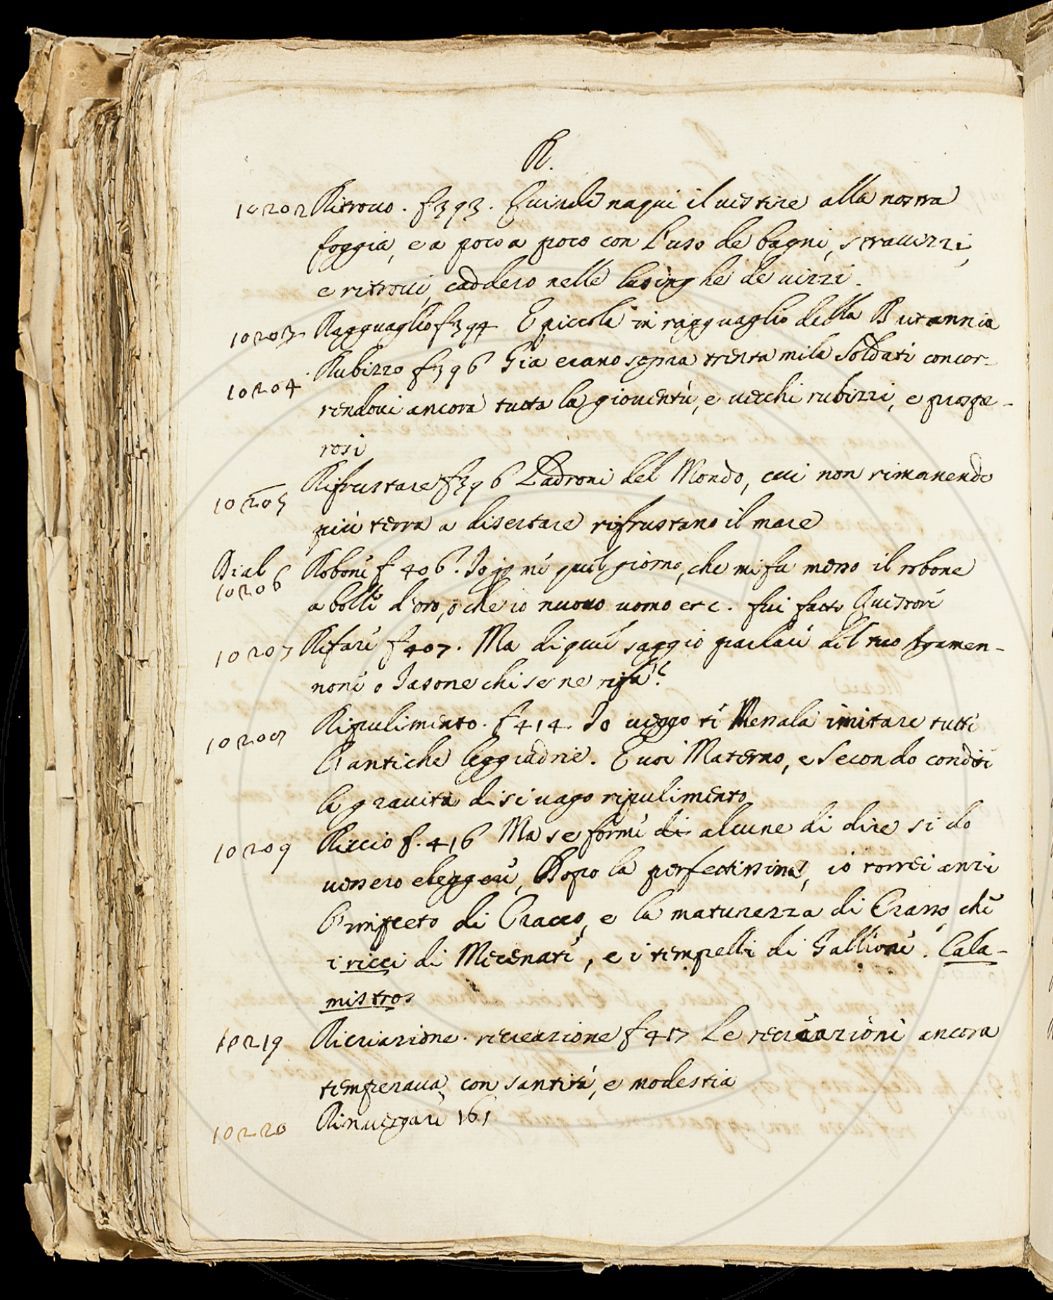 R.
10202 Ritrovo. f 393. Quindi naqui il vestire alla nostra
foggia, e a poco a poco con l'uso de bagni, stravizzi,
e ritrovi, caddero nelle lusinghe de vizzi.
10203 Ragguaglio f 394 E piccola in ragguaglio della Britannia
10204 Rubizzo f 396 Gia erano sopra trenta mila Soldati concor-
rendovi ancora tutta la gioventù, e vecchi rubizzi, e prospe-
rosi
10205 Rifrustare f 396 Ladroni del Mondo, cui non rimanendo
più terra a disertare rifrustano il mare
Dial 6
10206 Robone f 406. Io ne quel giorno, che mi fu messo il robone
a bolli d'oro, o che io nuovo uomo etc. fui fatto Questore
10207 Rifare f 407. Ma di quel saggio parlavi del tuo Agamen-
none o Jasone chi se ne rifà?
10208 Ripulimento. f 414. Io veggo te Messala imitare tutte
l'antiche leggiadrie. E voi Materno, e Secondo condite
la gravità di sì vago ripulimento
10209 Riccio f. 416 Ma se forme di alcune di dire si do
vessero eleggere, Dopo la perfettissima, io torrei anzi
l'impeto di Gracco, e la maturezza di Crasso, che
i ricci di Mecenate, e i tempelli di Gallione. Cala-
mistros
10219 Ricriazione. recreazione f 417 Le recriazioni ancora
temperava con santità, e modestia
10220 Rinvergare 161